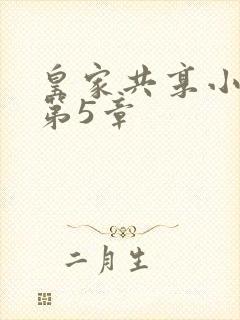 皇家共享小
第5章
二月生